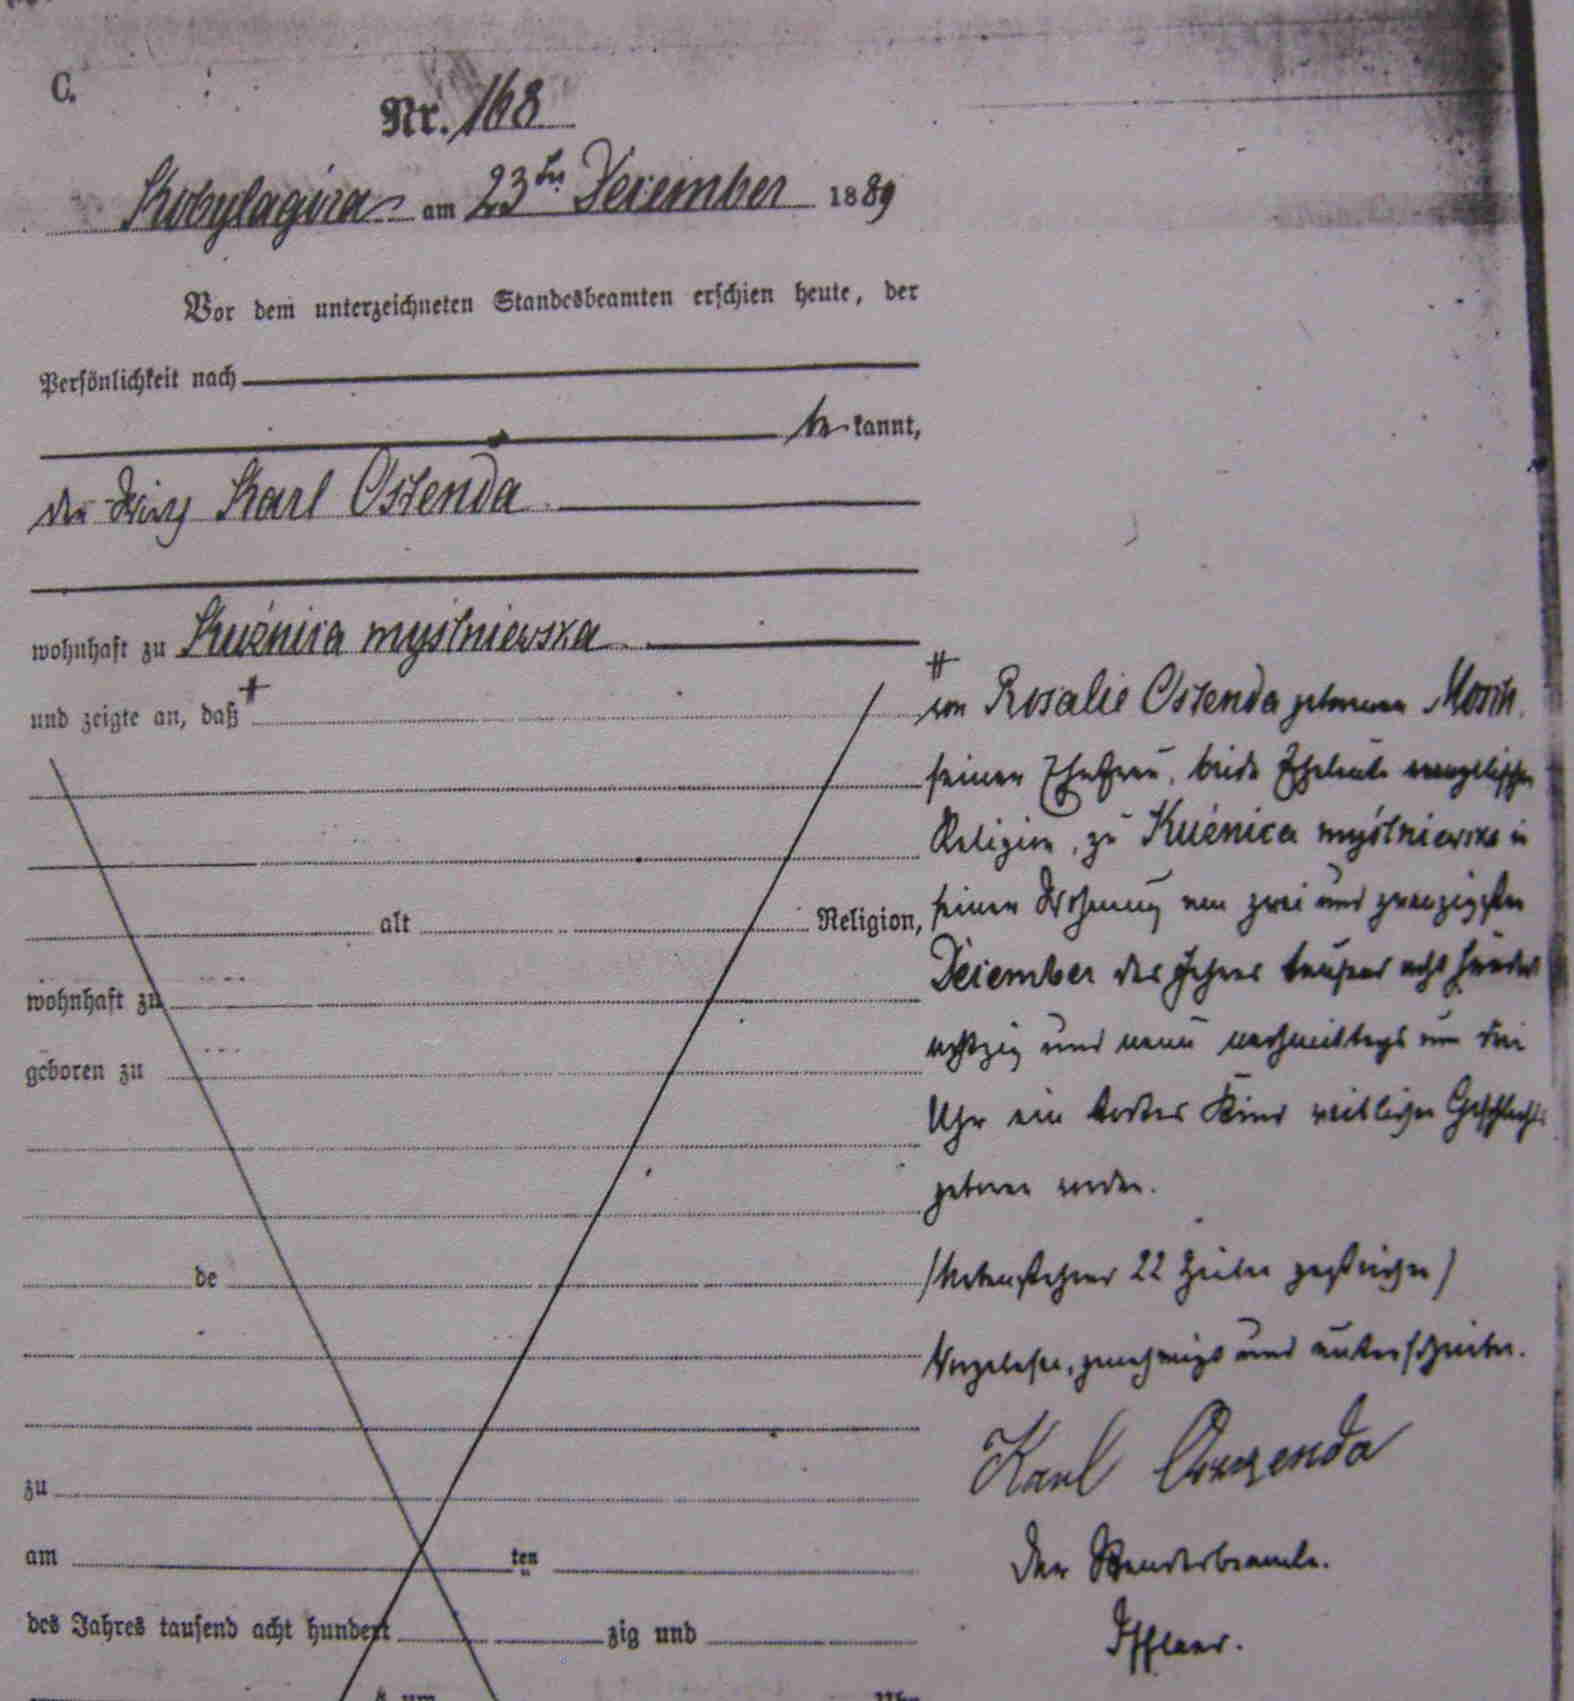 C.
Nr. 168
Kobylagóra am 23ten Dezember 1889
Vor dem unterzeichneten Standesbeamten erschien heute, der
Persönlichkeit nach
be kannt,
der Karl Ostenda
wohnhaft zu Kuźnica myślniewska
und zeigte an, daß #
# von Rosalie Ostenda geborenen Mosch,
seiner Ehefrau, beide Eheleute evangelischer
Religion, zu Kuźnica myślniewska in
alt Religion,
seiner Wohnung am zwei und zwanzigsten
wohnhaft zu
Dezember des Jahres tausend acht hundert
geboren zu
achtzig und neun nachmittags um drei
Uhr ein todtes Kind weiblichen Geschlechts
geboren worden.
de
/Nebenstehend 22 Zeilen gestrichen/
Vorgelesen, genehmigt und unterschrieben.
Karl Ostenda
zu
am ten
Der Standesbeamte.
des Jahres tausend acht hundert zig und
um Uhr